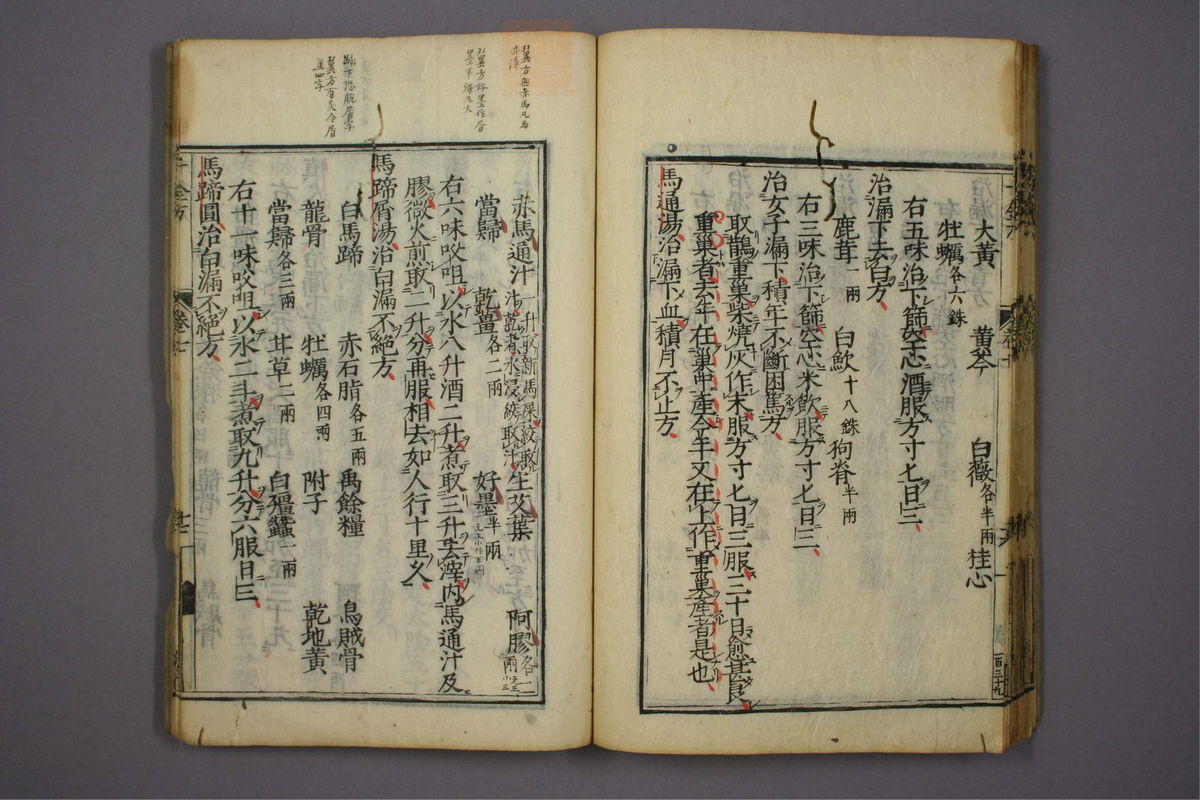 大黃 黃芩 白薇各半兩 桂心
牡蠣各六銖
右五味治下篩空心酒服方寸匕日三
治漏下去白方
鹿茸一兩 白歛十八銖 狗脊半兩
右三味治下篩空心米飲服方寸匕日三
治女子漏下積年不斷困篤方
取鵲重巢柴燒灰作末服方寸匕日三服三十日愈甚良
重巢者去年在巢中產今年又在上作重巢產者是也
馬通湯治漏下血積月不止方
百三十九
赤馬通汁一升取新馬屎絞取汁乾者水浸絞取汁 生艾葉 阿膠各三兩
當歸 乾薑各二兩 好墨半兩
右六味㕮咀以水八升酒二升煮取三升去滓內馬通汁及
膠微火煎取二升分再服相去如人行十里久
馬蹄屑湯治白漏不絕方
白馬蹄 赤石脂各五兩 禹餘糧 烏賊骨
龍骨 牡蠣各四兩 附子 乾地黃
當歸各三兩 甘草二兩 白殭蠶一兩
右十一味㕮咀以水二斗煮取九升分六服日三
馬蹄圓治白漏不絕方